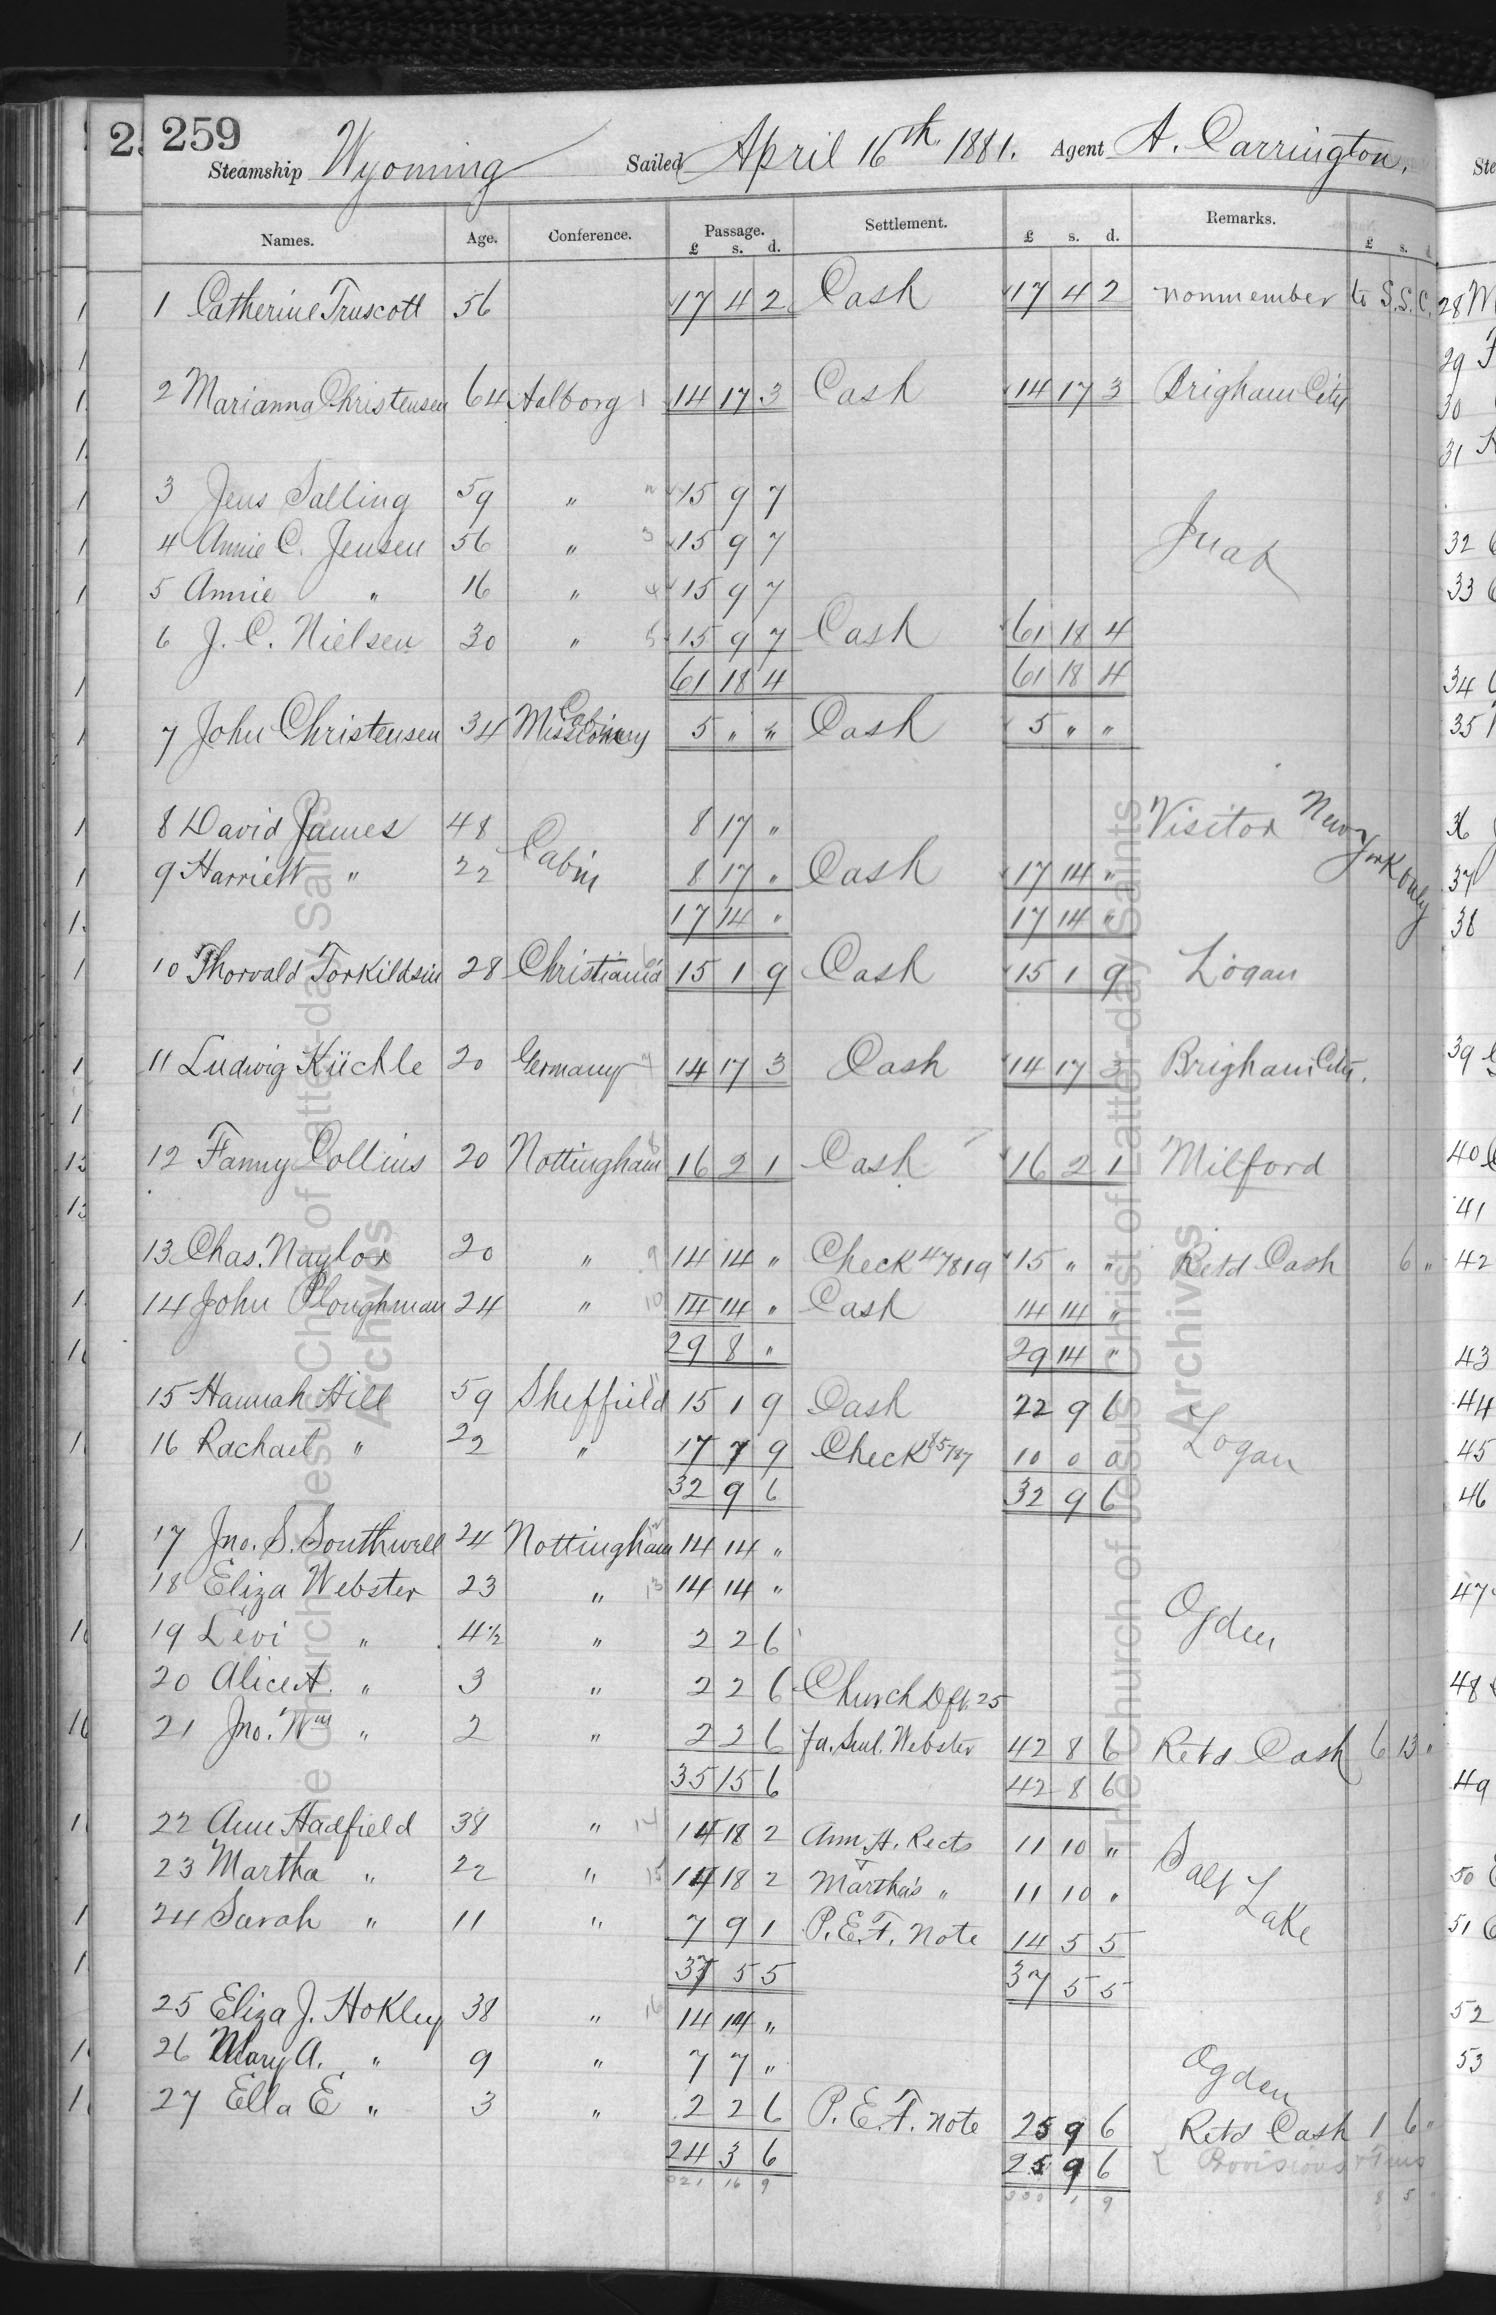 2
259
Steamship Wyoming Sailed April 16th 1881. Agent A. Carrington.
Names. Age. Conference. Passage. £ s. d. Settlement. £ s. d. Remarks. £ s. d.
1 Catherine Truscott 56 17 4 2 Cash 17 4 2 nonmember to S.S.C.
2 Marianna Christensen 64 Aalborg 1 14 17 3 Cash 14 17 3 Brigham City
3 Jens Salling 59 " 15 9 7
4 Annie C. Jensen 56 " 3 15 9 7 Juab
5 Annie " 16 " 4 15 9 7
6 J. C. Nielsen 30 " 5 15 9 7 Cash 61 18 4
61 18 4 61 18 4
7 John Christensen 34 Missionary Cabin 5 " " Cash 5 " "
8 David James 48 Cabin 8 17 " Visitor New York only
9 Harriett " 22 8 17 " Cash 17 14 "
17 14 " 17 14 "
10 Thorvald Torkildsin 28 Christiania 15 1 9 Cash 15 1 9 Logan
11 Ludwig Küchle 20 Germany 7 14 17 3 Cash 14 17 3 Brigham City.
12 Fanny Collins 20 Nottingham 8 16 2 1 Cash 16 2 1 Milford
13 Chas. Naylor 20 " 9 14 14 " Check 47819 15 " " Retd Cash 6 "
14 John Ploughman 24 " 10 14 14 " Cash 14 14 "
29 8 " 29 14 "
15 Hannah Hill 59 Sheffield 15 1 9 Cash 22 9 6 Logan
16 Rachael " 22 " 17 7 9 Check 10 0 0
32 9 6 32 9 6
17 Jno. S. Southwell 24 Nottingham 14 14 "
18 Eliza Webster 23 " 13 14 14 " Ogden
19 Levi " 4½ " 2 2 6
20 Alice A. " 3 " 2 2 6 Church Dft. 25
21 Jno. Wm " 2 " 2 2 6 fa. Webster 42 8 6 Retd Cash 6 13 "
35 15 6 42 8 6
22 Ann Hadfield 38 " 14 14 18 2 Ann H. Rects 11 10 " Salt Lake
23 Martha " 22 " 15 14 18 2 Martha's " 11 10 "
24 Sarah " 11 " 7 9 1 P.E.F. note 14 5 5
37 5 5 37 5 5
25 Eliza J. Hokley 38 " 16 14 14 "
26 Mary A. " 9 " 7 7 " Ogden
27 Ella E " 3 " 2 2 6 P.E.F. note 25 9 6 Retd Cash 1 6 "
24 3 6 25 9 6 Provisions
321 16 9 330 1 9 8 5
The Church of Jesus Christ of Latter-day Saints
Archives
The Church of Jesus Christ of Latter-day Saints
Archives